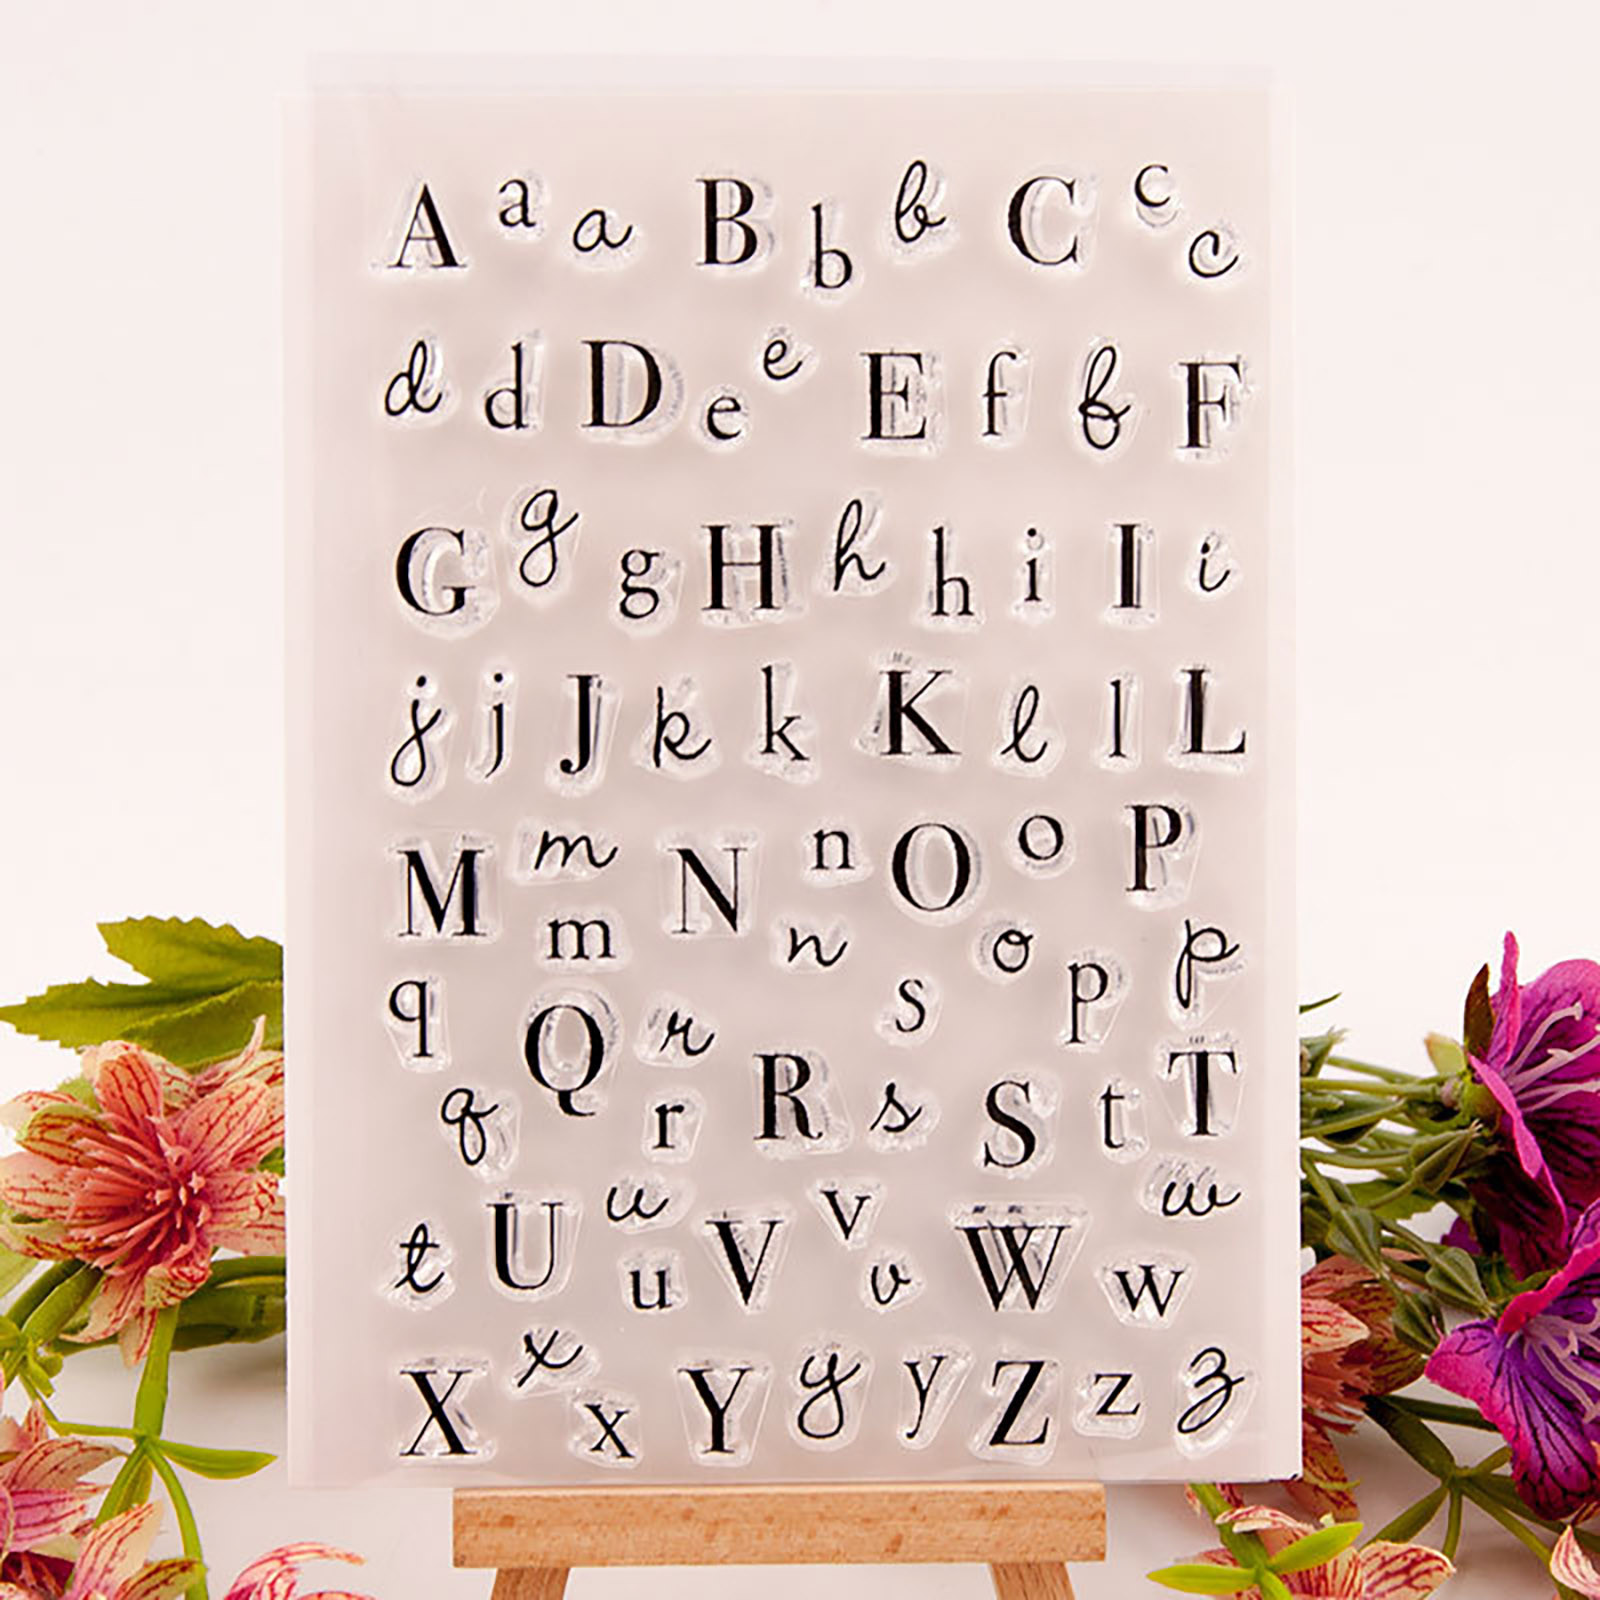 A a a B b b C c c
d d D e e E f f F
G g g H h h i I i
j j J k k K l l L
M m m N n n O o o P p p
q q Q r r R s s S t T
t U u u V v v W w w
X x x Y y y Z z z